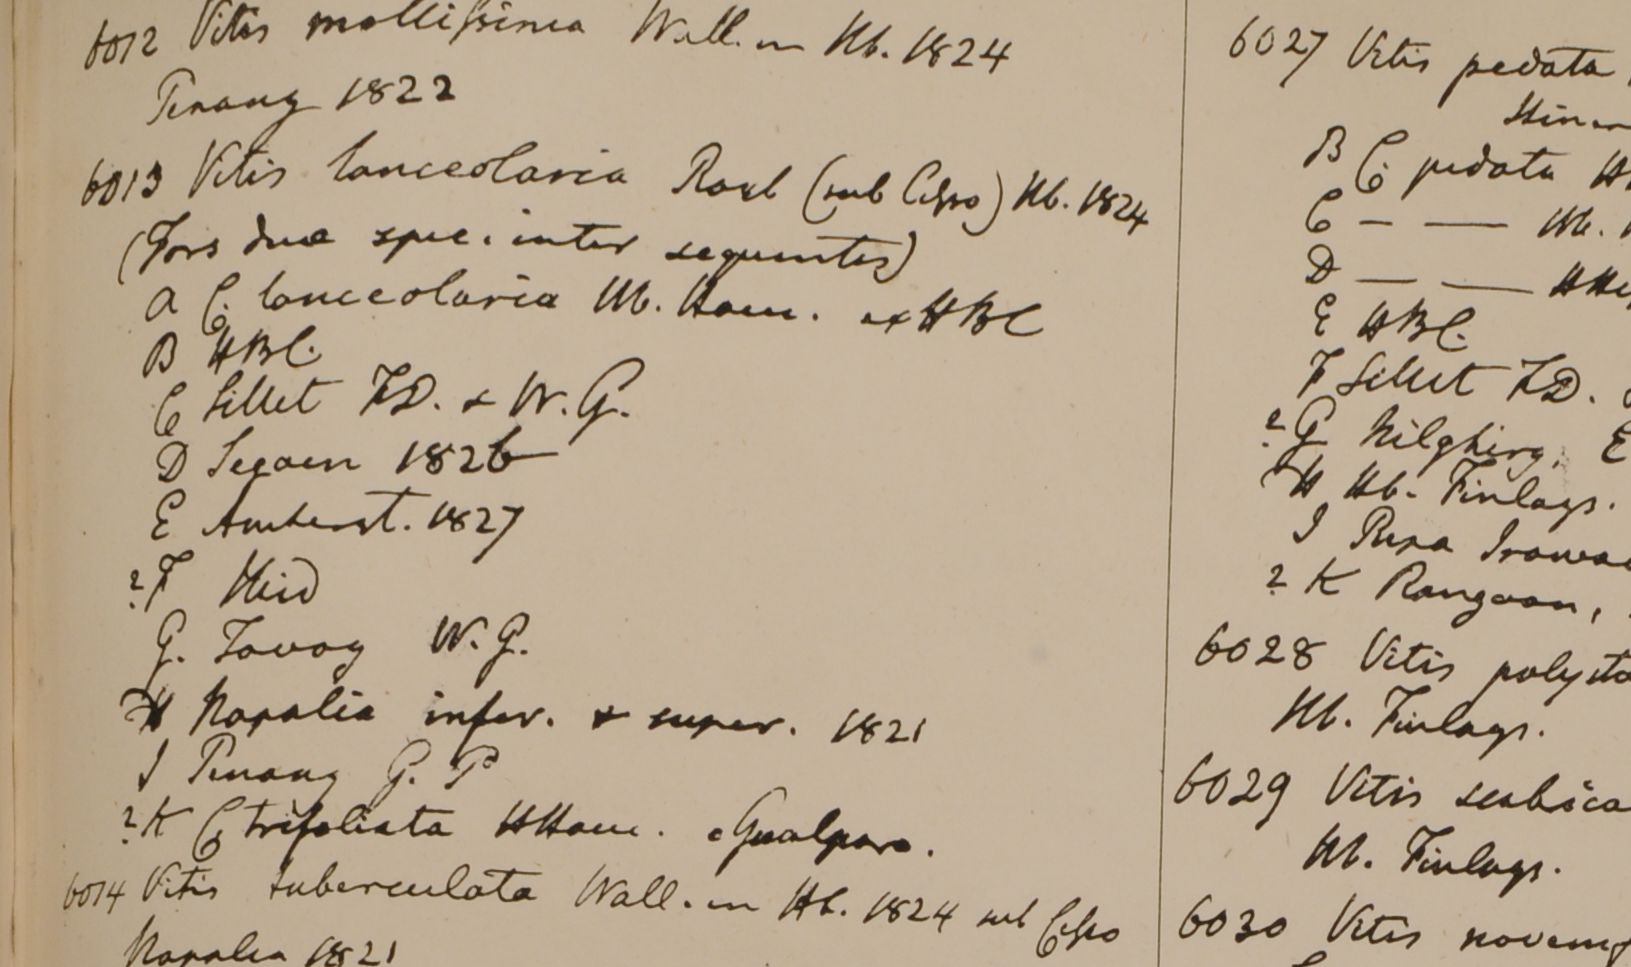 6012 Vitis mollissima Wall. in Hb. 1824
Penang 1822
6013 Vitis lanceolaria Roxb (sub Cisso) Hb. 1824
(Fors duæ spec. inter sequentes)
A C. lanceolaria Hb. Ham. ex HBC
B HBC.
C Sillet FD. & W.G.
D Segaen 1826
E Amherst. 1827
?F Ibid
G. Tavoy W.G.
H Napalia infer. & super. 1821
I Penang G. P
?K C trifoliata HHam. e Gualpara.
6014 Vitis tuberculata Wall. in Hb. 1824 sub Cisso
Napalia 1821
6027 Vitis pedata
B C. pedata
C — — Hb.
D — —
E HBC.
F Sillet FD.
?G Nilghiry. E
H Hb. Finlays.
I Ripa
?K Rangoon,
6028 Vitis
Hb. Finlays.
6029 Vitis
Hb. Finlays.
6030 Vitis